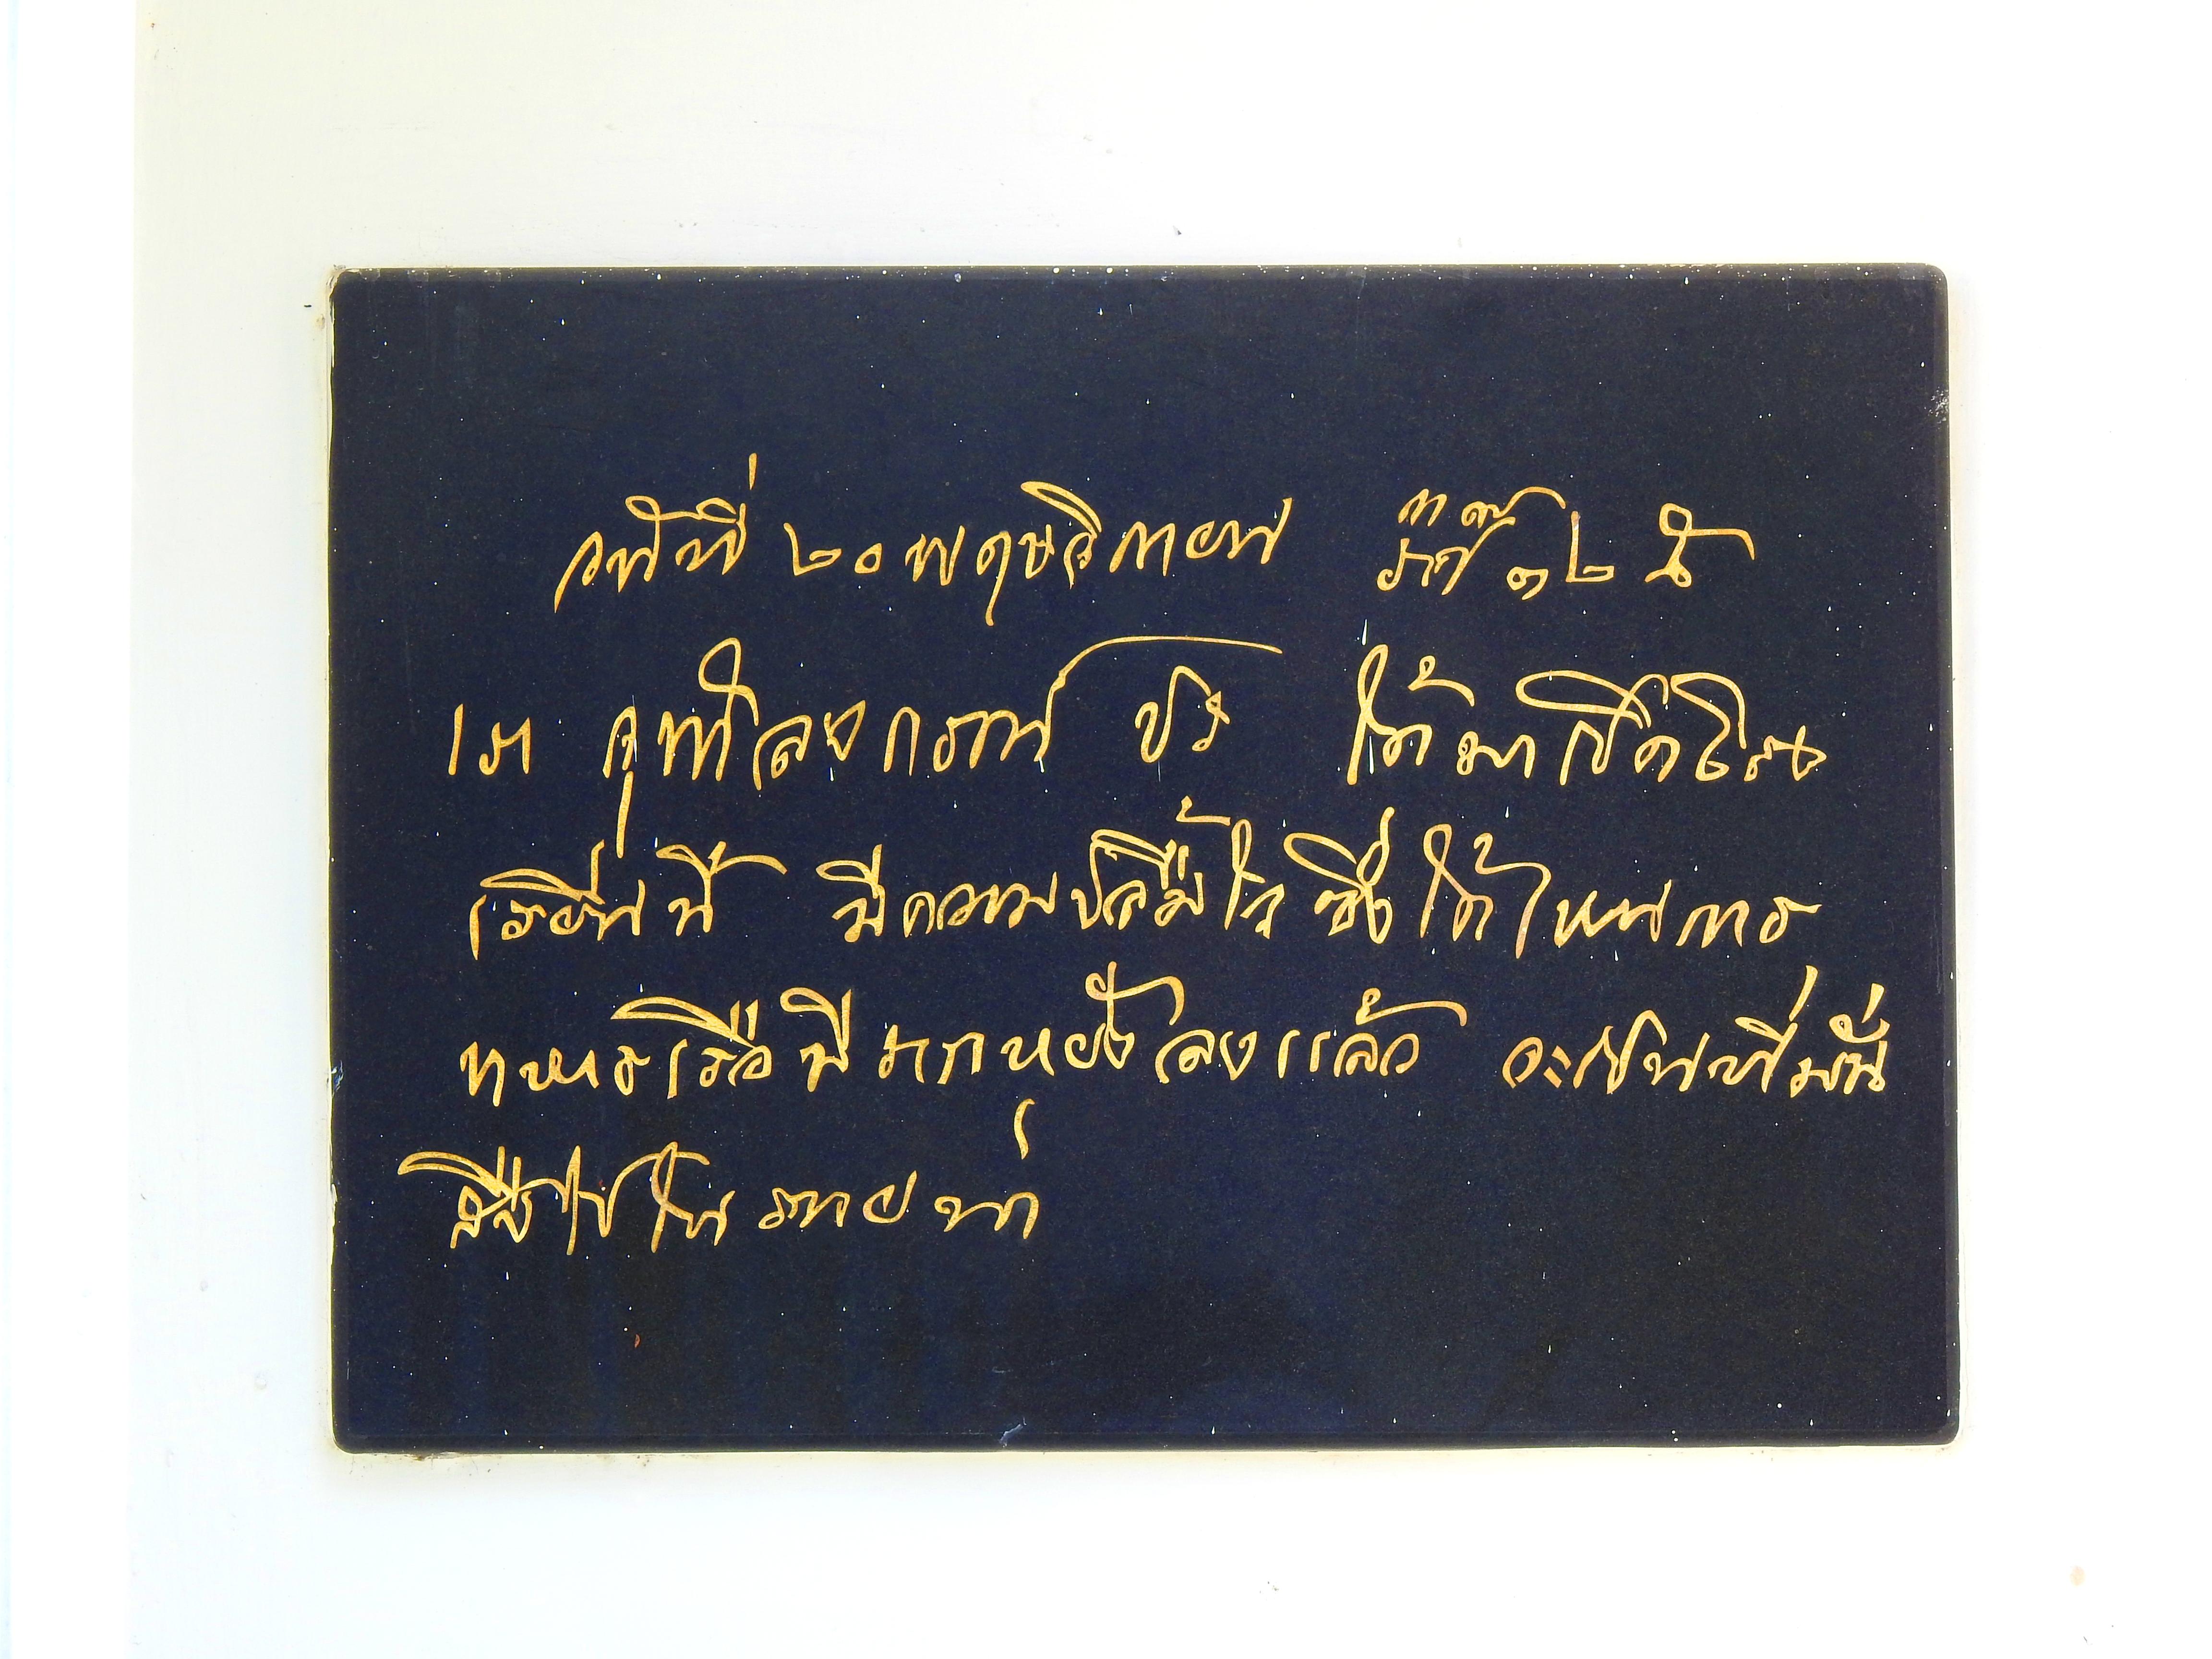 วันที่ ๒๐ พฤษจิกายน ๑๒๕
เรา จุฬาลงกรณ์ ปร ได้มาเปิดโรง
เรียนนี้ มีความปลื้มใจซึ่งได้เห็นการ
ทหารเรือมีรากหยั่งลงแล้ว จะเป็นที่มั่น
สืบไปในภายน่า